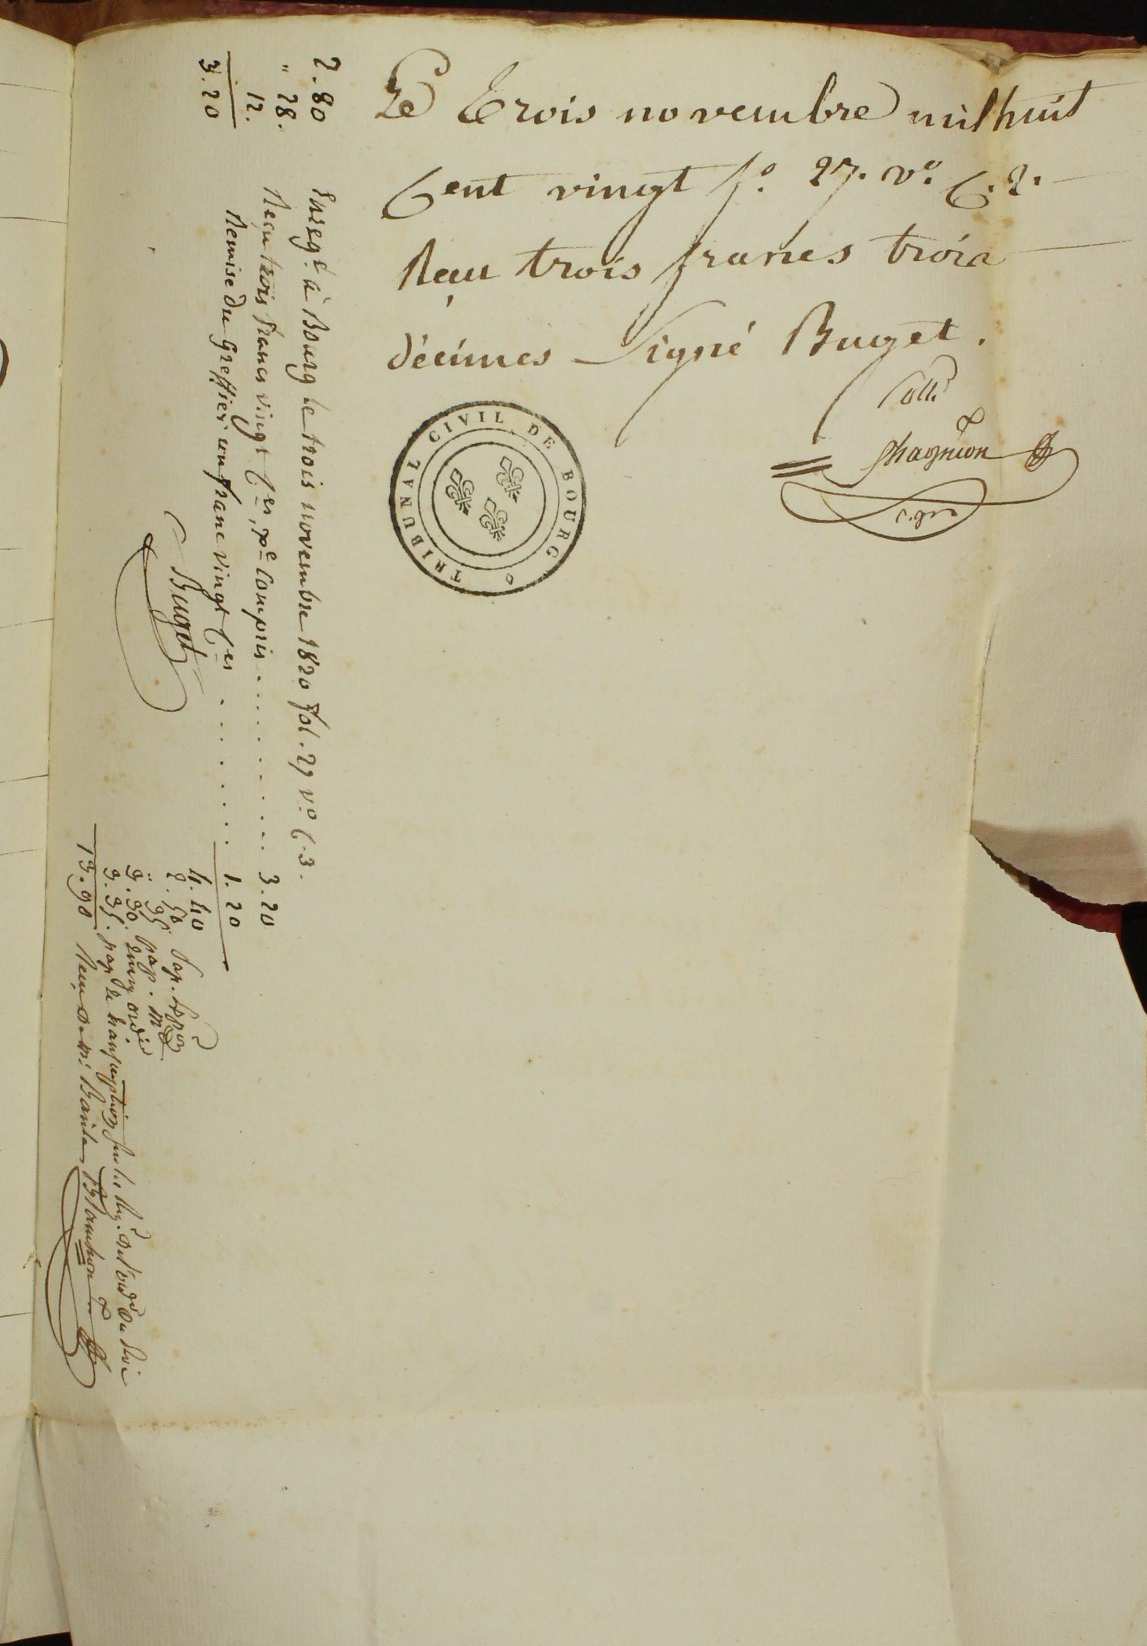 Le trois novembre mil huit
Cent vingt fo. 27. vo. C. 2.
Reçu trois francs trois
décimes Signé Buget.
Coll.
Chagnion
c. gre
TRIBUNAL CIVIL DE BOURG
2.80
" 28.
12.
3.20
Enregé. à Bourg le trois novembre 1820 fol. 27 vo. C. 3.
Reçu trois francs vingt Ces, Xe compris . . . . . . . . . . 3.20
Remise du Greffier un franc vingt Ces . . . . . . . . 1.20
Buget
4.40
2.50 Pap. Exp.on
". 95 pap. m.
3.30
3.35. pap. de transcription sur les Reg. du Roi
13.90 Reçu de M.